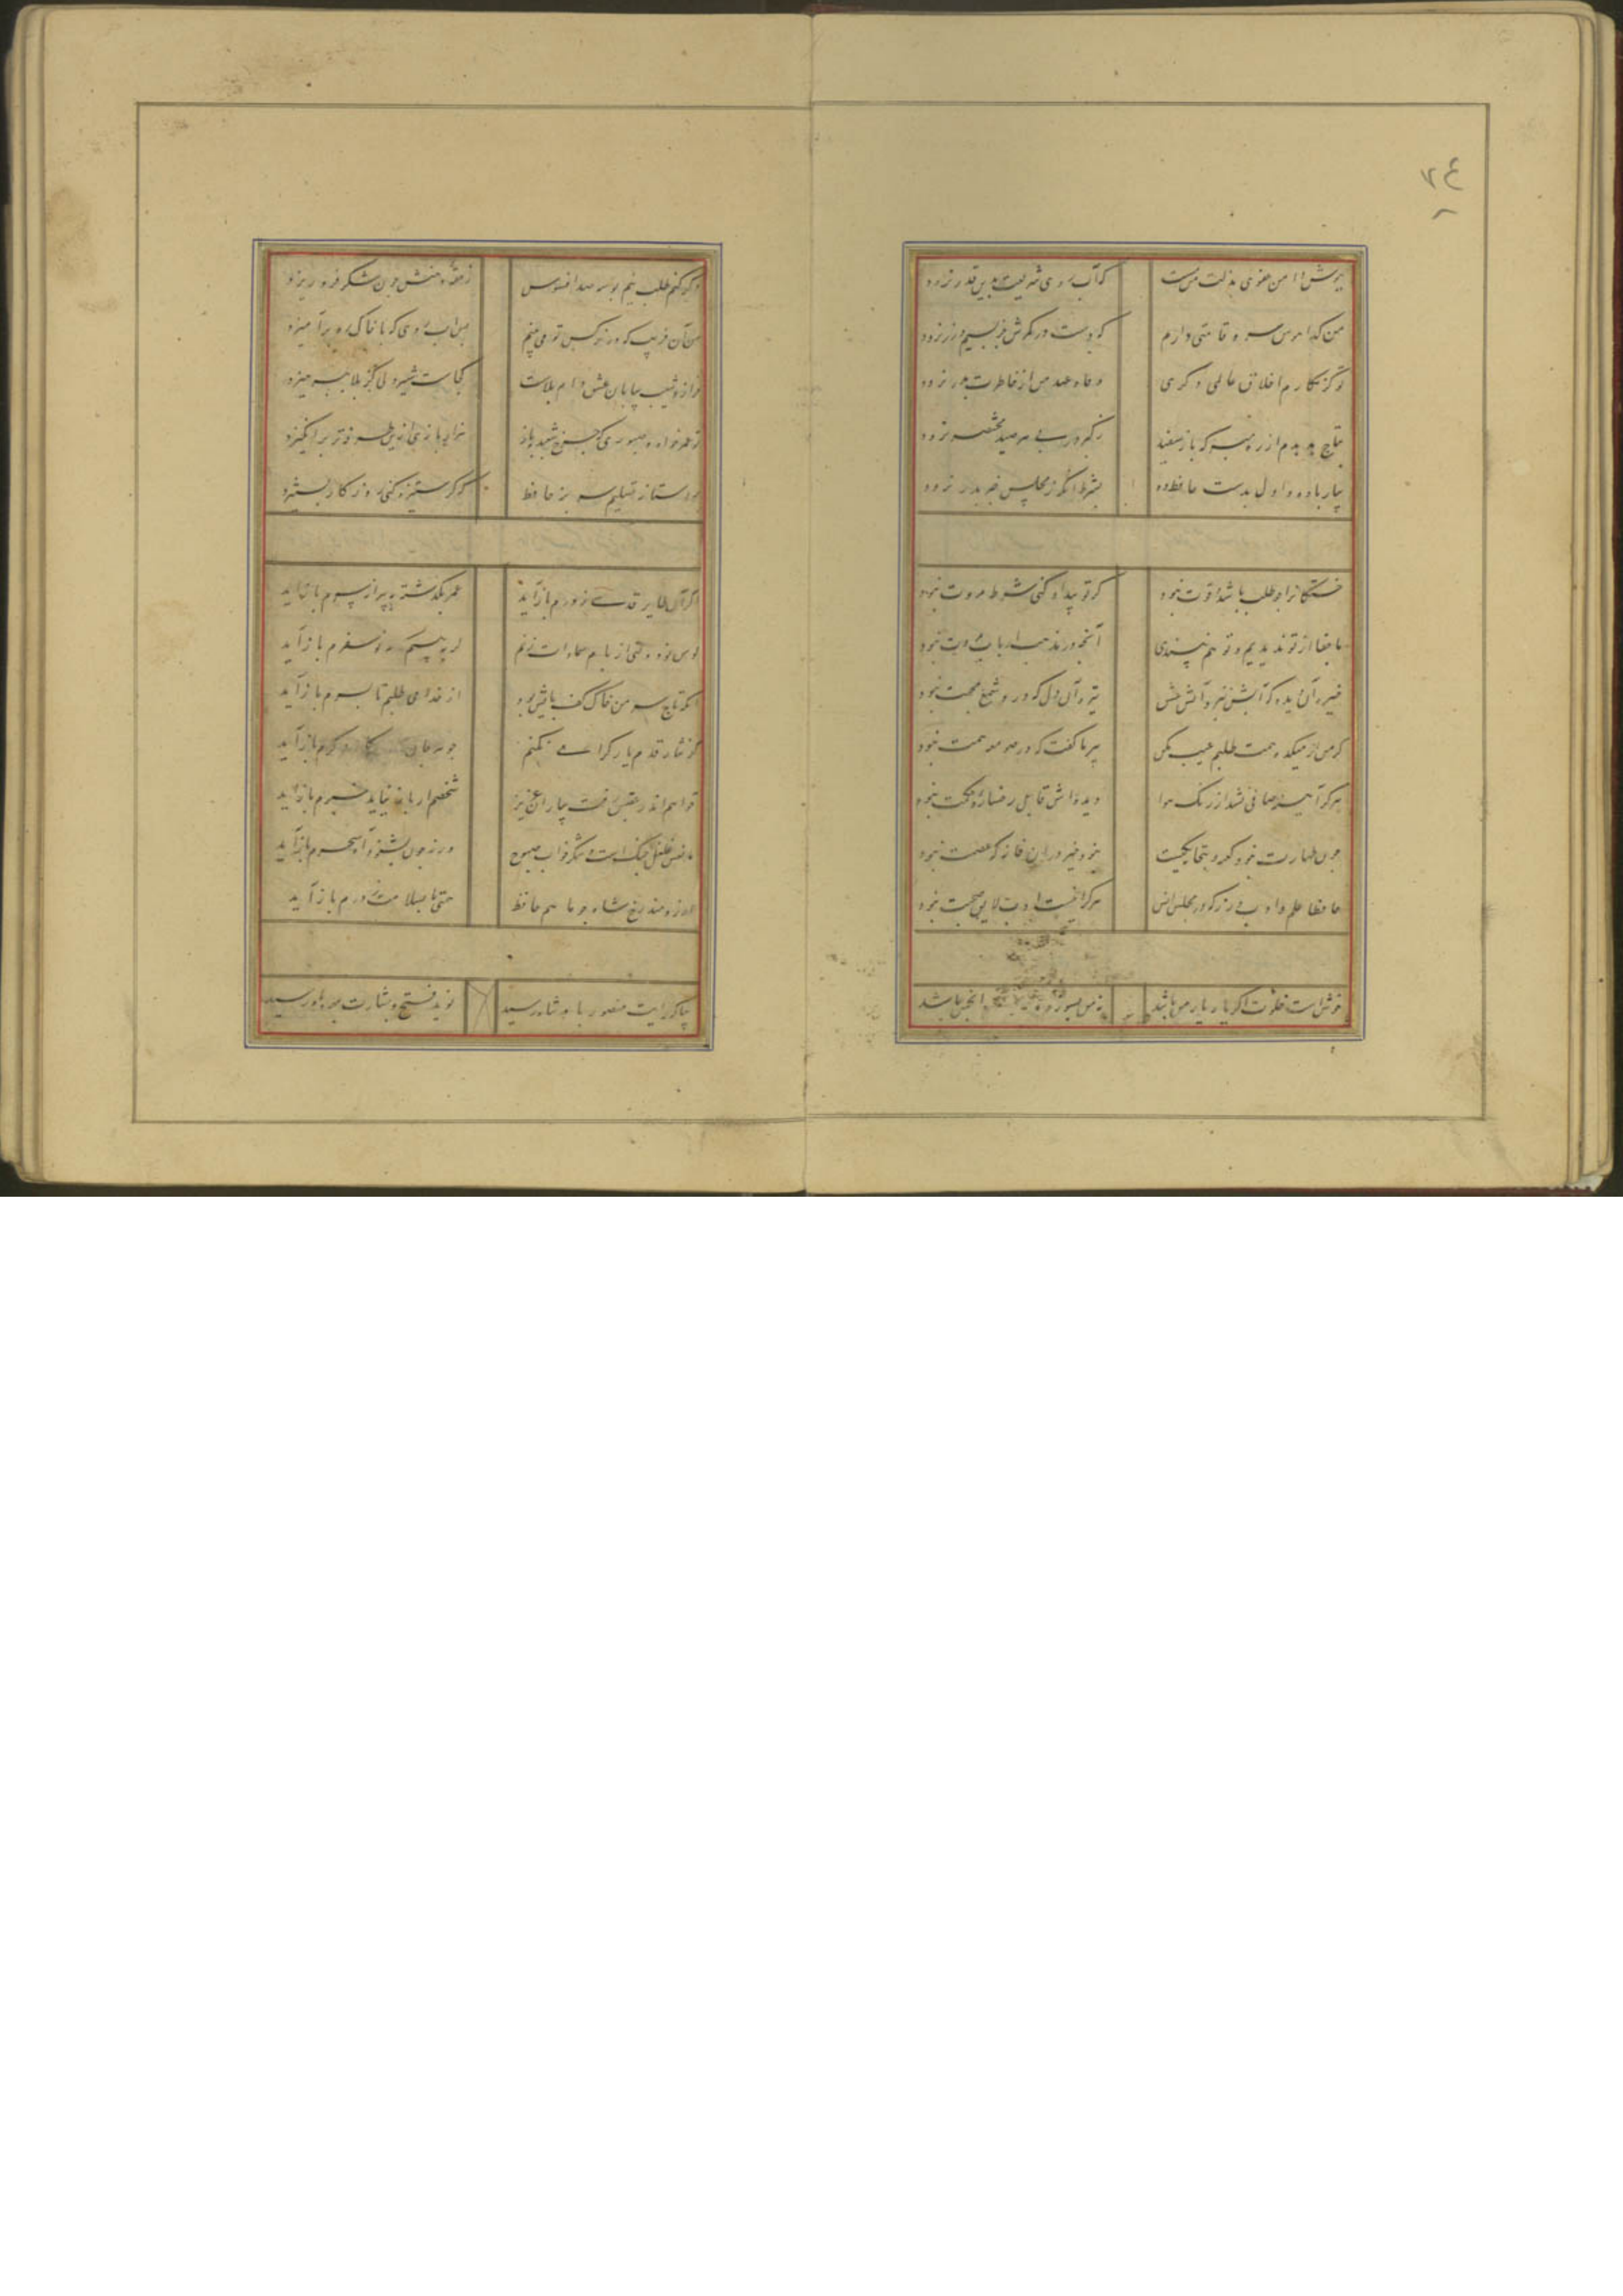 ۷۴
بپوش دامن عفوی بذلت من مست که آب روی شریعت بدین قدر نرود
من گدا هوس سرو قامتی دارم که دست در کمرش جز بسیم و زر نرود
تو کز مکارم اخلاق عالمی دگری وفاء عهد من از خاطرت بدر نرود
بتاج هدهدم از ره مبر که باز سفید ز کبر در پی هر صید مختصر نرود
بیار باده و اول بدست حافظ ده بشرط آنکه ز مجلس خبر بدر نرود
خستگانرا چو طلب باشد و قوت نبود گر تو بیداد کنی شرط مروت نبود
ما جفا از تو ندیدیم و تو هم نپسندی آنچه در مذهب ارباب رویت نبود
خیره آن دیده که آبش نبرد آتش عشق تیره آن دل که درو شمع محبت نبود
گر من از میکده همت طلبم عیب مکن پیر ما گفت که در صومعه همت نبود
هر که آیینه صافی نشد از زنگ هوا دیده اش قابل رخساره حکمت نبود
چون طهارت نبود کعبه و بتخانه یکیست نبود خیر در ان خانه که عصمت نبود
حافظا علم و ادب ورز که در مجلس انس هر کرا نیست ادب لایق صحبت نبود
خوش است خلوت اگر یار یار من باشد نه من بسوزم و انجمن باشد
وگر کنم طلب نیم بوسه صد افسوس ز حقه دهنش چون شکر فرو ریزد
من آن فریب که در نرگس تو می بینم بس آب روی که با خاک ره برآمیزد
فراز و شیب بیابان عشق دام بلاست کجاست شیر دلی کز بلا نپرهیزد
تو عمر خواه و صبوری که چرخ شعبده باز هزار بازی ازین طرفه تر برانگیزد
بر آستانه تسلیم سر بنه حافظ که گر ستیزه کنی روزگار بستیزد
اگر آن طایر قدسی ز درم بازآید عمر بگذشته به پیرانه سرم بازآید
کوس نو دولتی از بام سعادت بزنم گر ببینم که مه نو سفرم بازآید
آنکه تاج سر من خاک کف پایش بود از خدا می طلبم تا بسرم بازآید
گر نثار قدم یار گرامی نکنم جوهر جان بچه کار دگرم بازآید
خواهم اندر عقبش رفت بیاران عزیز شخصم ار باز نیاید خبرم بازآید
مانعش غلغل چنگ است و شکر خواب صبوح ورنه چون بشنود آه سحرم بازآید
آرزومند رخ شاه چو ماهم حافظ همتی تا بسلامت ز درم بازآید
بیا که رایت منصور پادشاه رسید نوید فتح و بشارت بمهر و ماه رسید